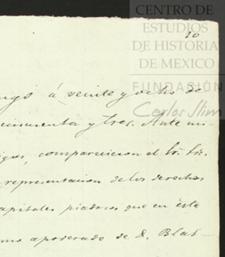 CENTRO DE
ESTUDIOS
DE HISTORIA
DE MEXICO
FUNDACIÓN
Carlos Slim
á veinte y ocho de
cincuenta y tres. Ante mi
comparecieron el Sr.
representacion de los derechos
capitales piadosos que en este
como apoderado de D. Blas